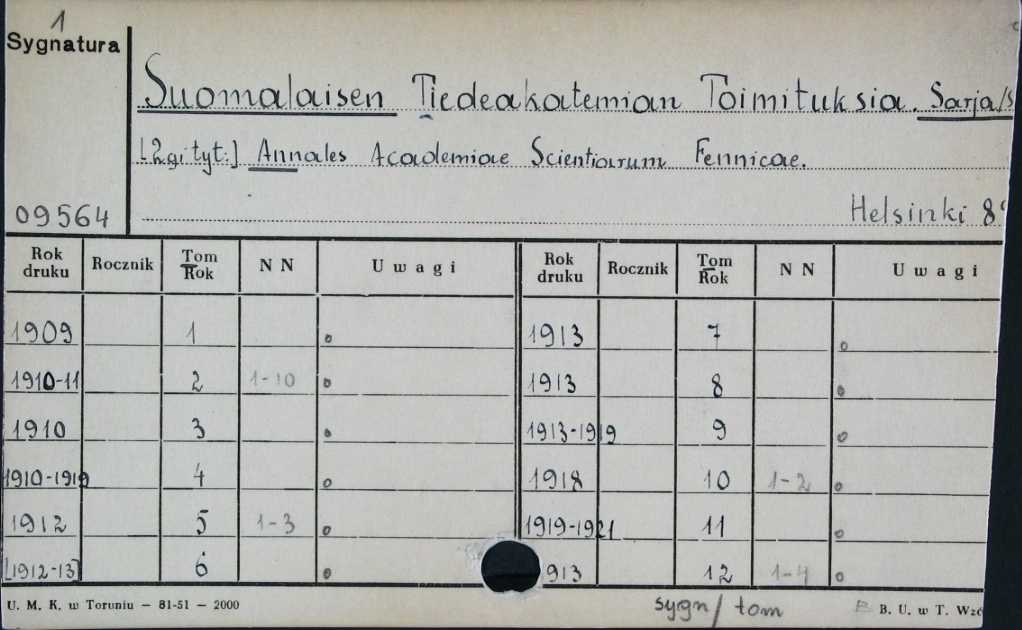 1
Sygnatura
Suomalaisen Tiedeakatemian Toimituksia. Sarja/s
[2gi tyt:] Annales Academiae Scientiarum Fennicae.
09564
Helsinki 8°
Rok druku Rocznik Tom Rok N N Uwagi Rok druku Rocznik Tom Rok N N Uwagi
1909 1 o 1913 7 o
1910-11 2 1-10 o 1913 8 o
1910 3 o 1913-1919 9 o
1910-1919 4 o 1918 10 1-2 o
1912 5 1-3 o 1919-1921 11 o
[1912-13] 6 o 1913 12 1-4 o
U. M. K. w Toruniu — 81-51 — 2000
sygn/tom
B. U. w T.